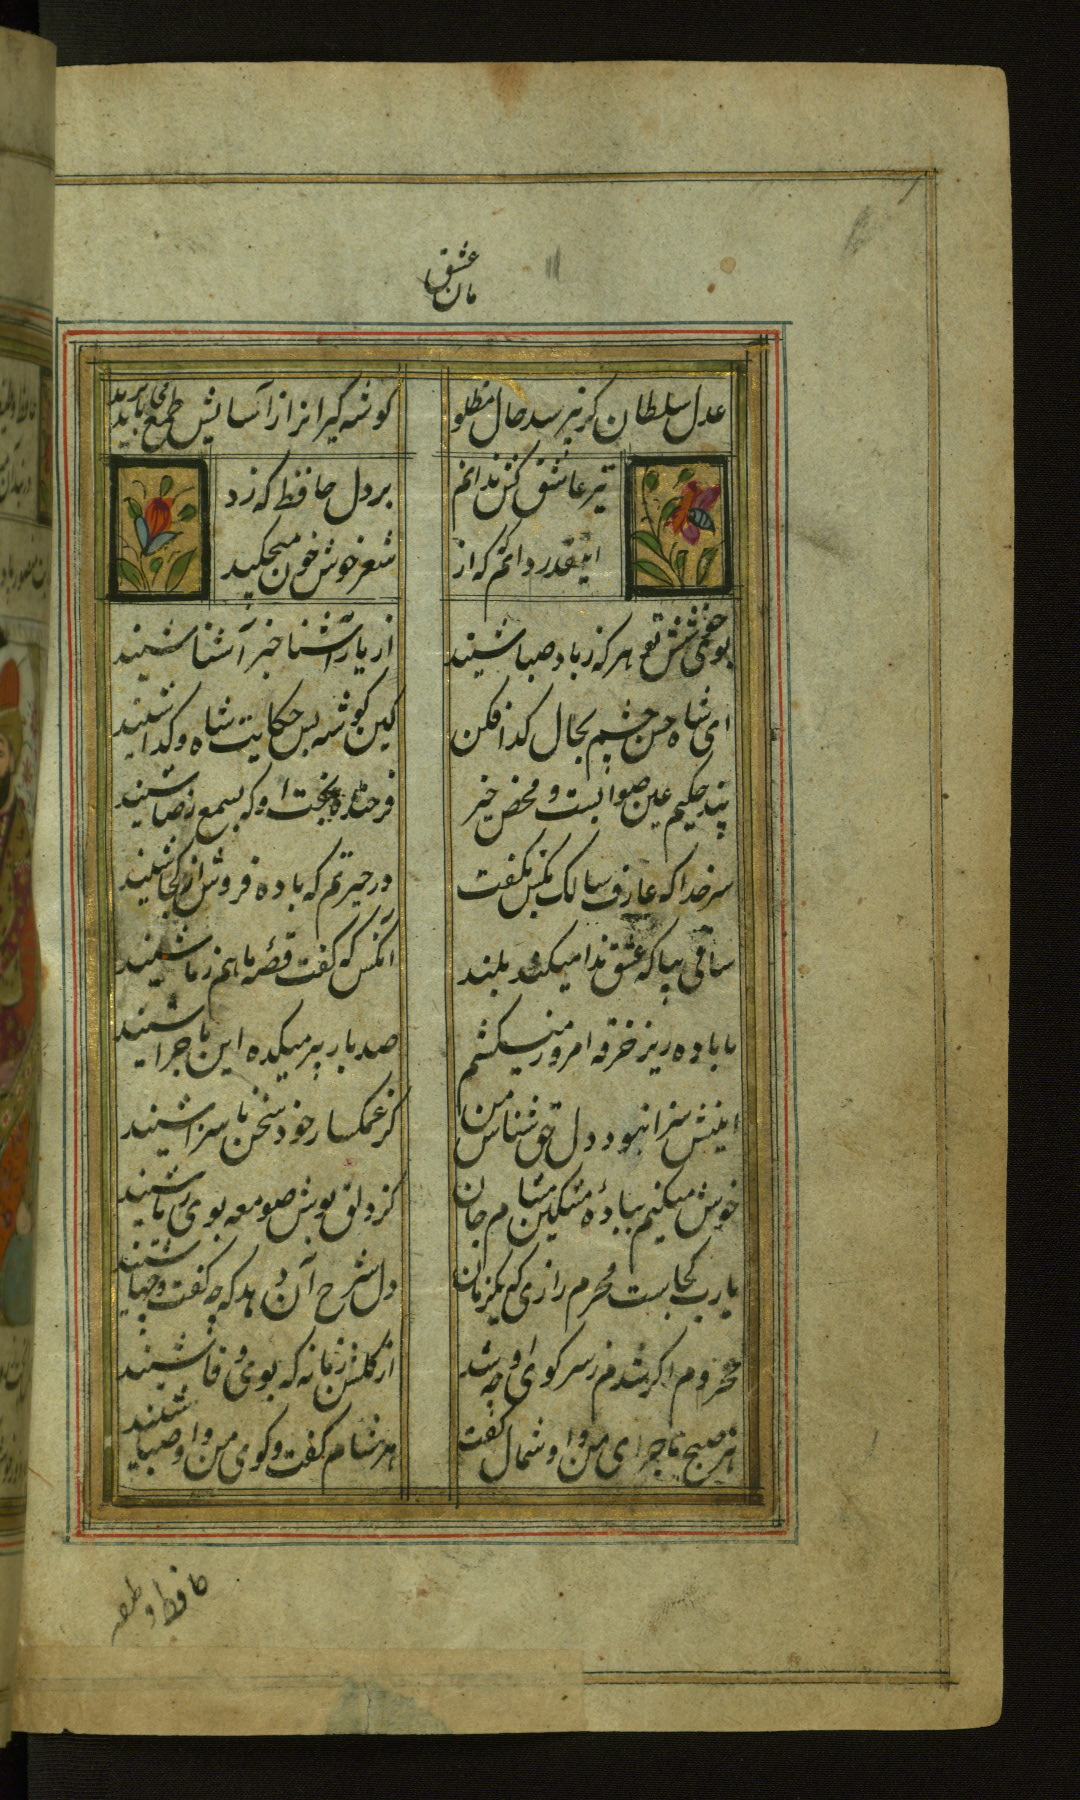 عشق
مان
عدل سلطان گر نپرسد حال مظلو
گوشه گیرانرا ز آسایش طمع باید برید
تیر عاشق کش ندانم
بر دل حافظ که زد
اینقدر دانم که از
شعر خوش خون میچکید
بوی خوش تو هر که ز باد صبا شنید
از یار آشنا خبر آشنا شنید
ای شاه حسن چشم بحال گدا فکن
کین گوشه بس حکایت شاه و گدا شنید
پند حکیم عین صوابست و محض خیر
فرخنده بخت او که بسمع رضا شنید
سر خدا که عارف سالک بکس نگفت
در حیرتم که باده فروش از کجا شنید
ساقی بیا که عشق ندا میکند بلند
انکس که گفت قصهٔ ما هم ز ما شنید
ما باده زیر خرقه امروز میکشم
صد بار پیر میکده این ماجرا شنید
اینش سزا نبود دل حق شناس من
کز غمگسار خود سخن ناسزا شنید
خوش میکنم ببادهٔ مشکین مشام جان
کز دلق پوش صومعه بوی ریا شنید
یارب کجاست محرم رازی که یکزمان
دل شرح آن دهد که چه گفت و چها شنید
محروم اگر شدم ز سر کوی او چه شد
از گلشن زمانه که بوی وفا شنید
هر صبح ماجرای من و او شمال گفت
هر شام گفت و گوی من و او صبا شنید
حافظ وظیفه